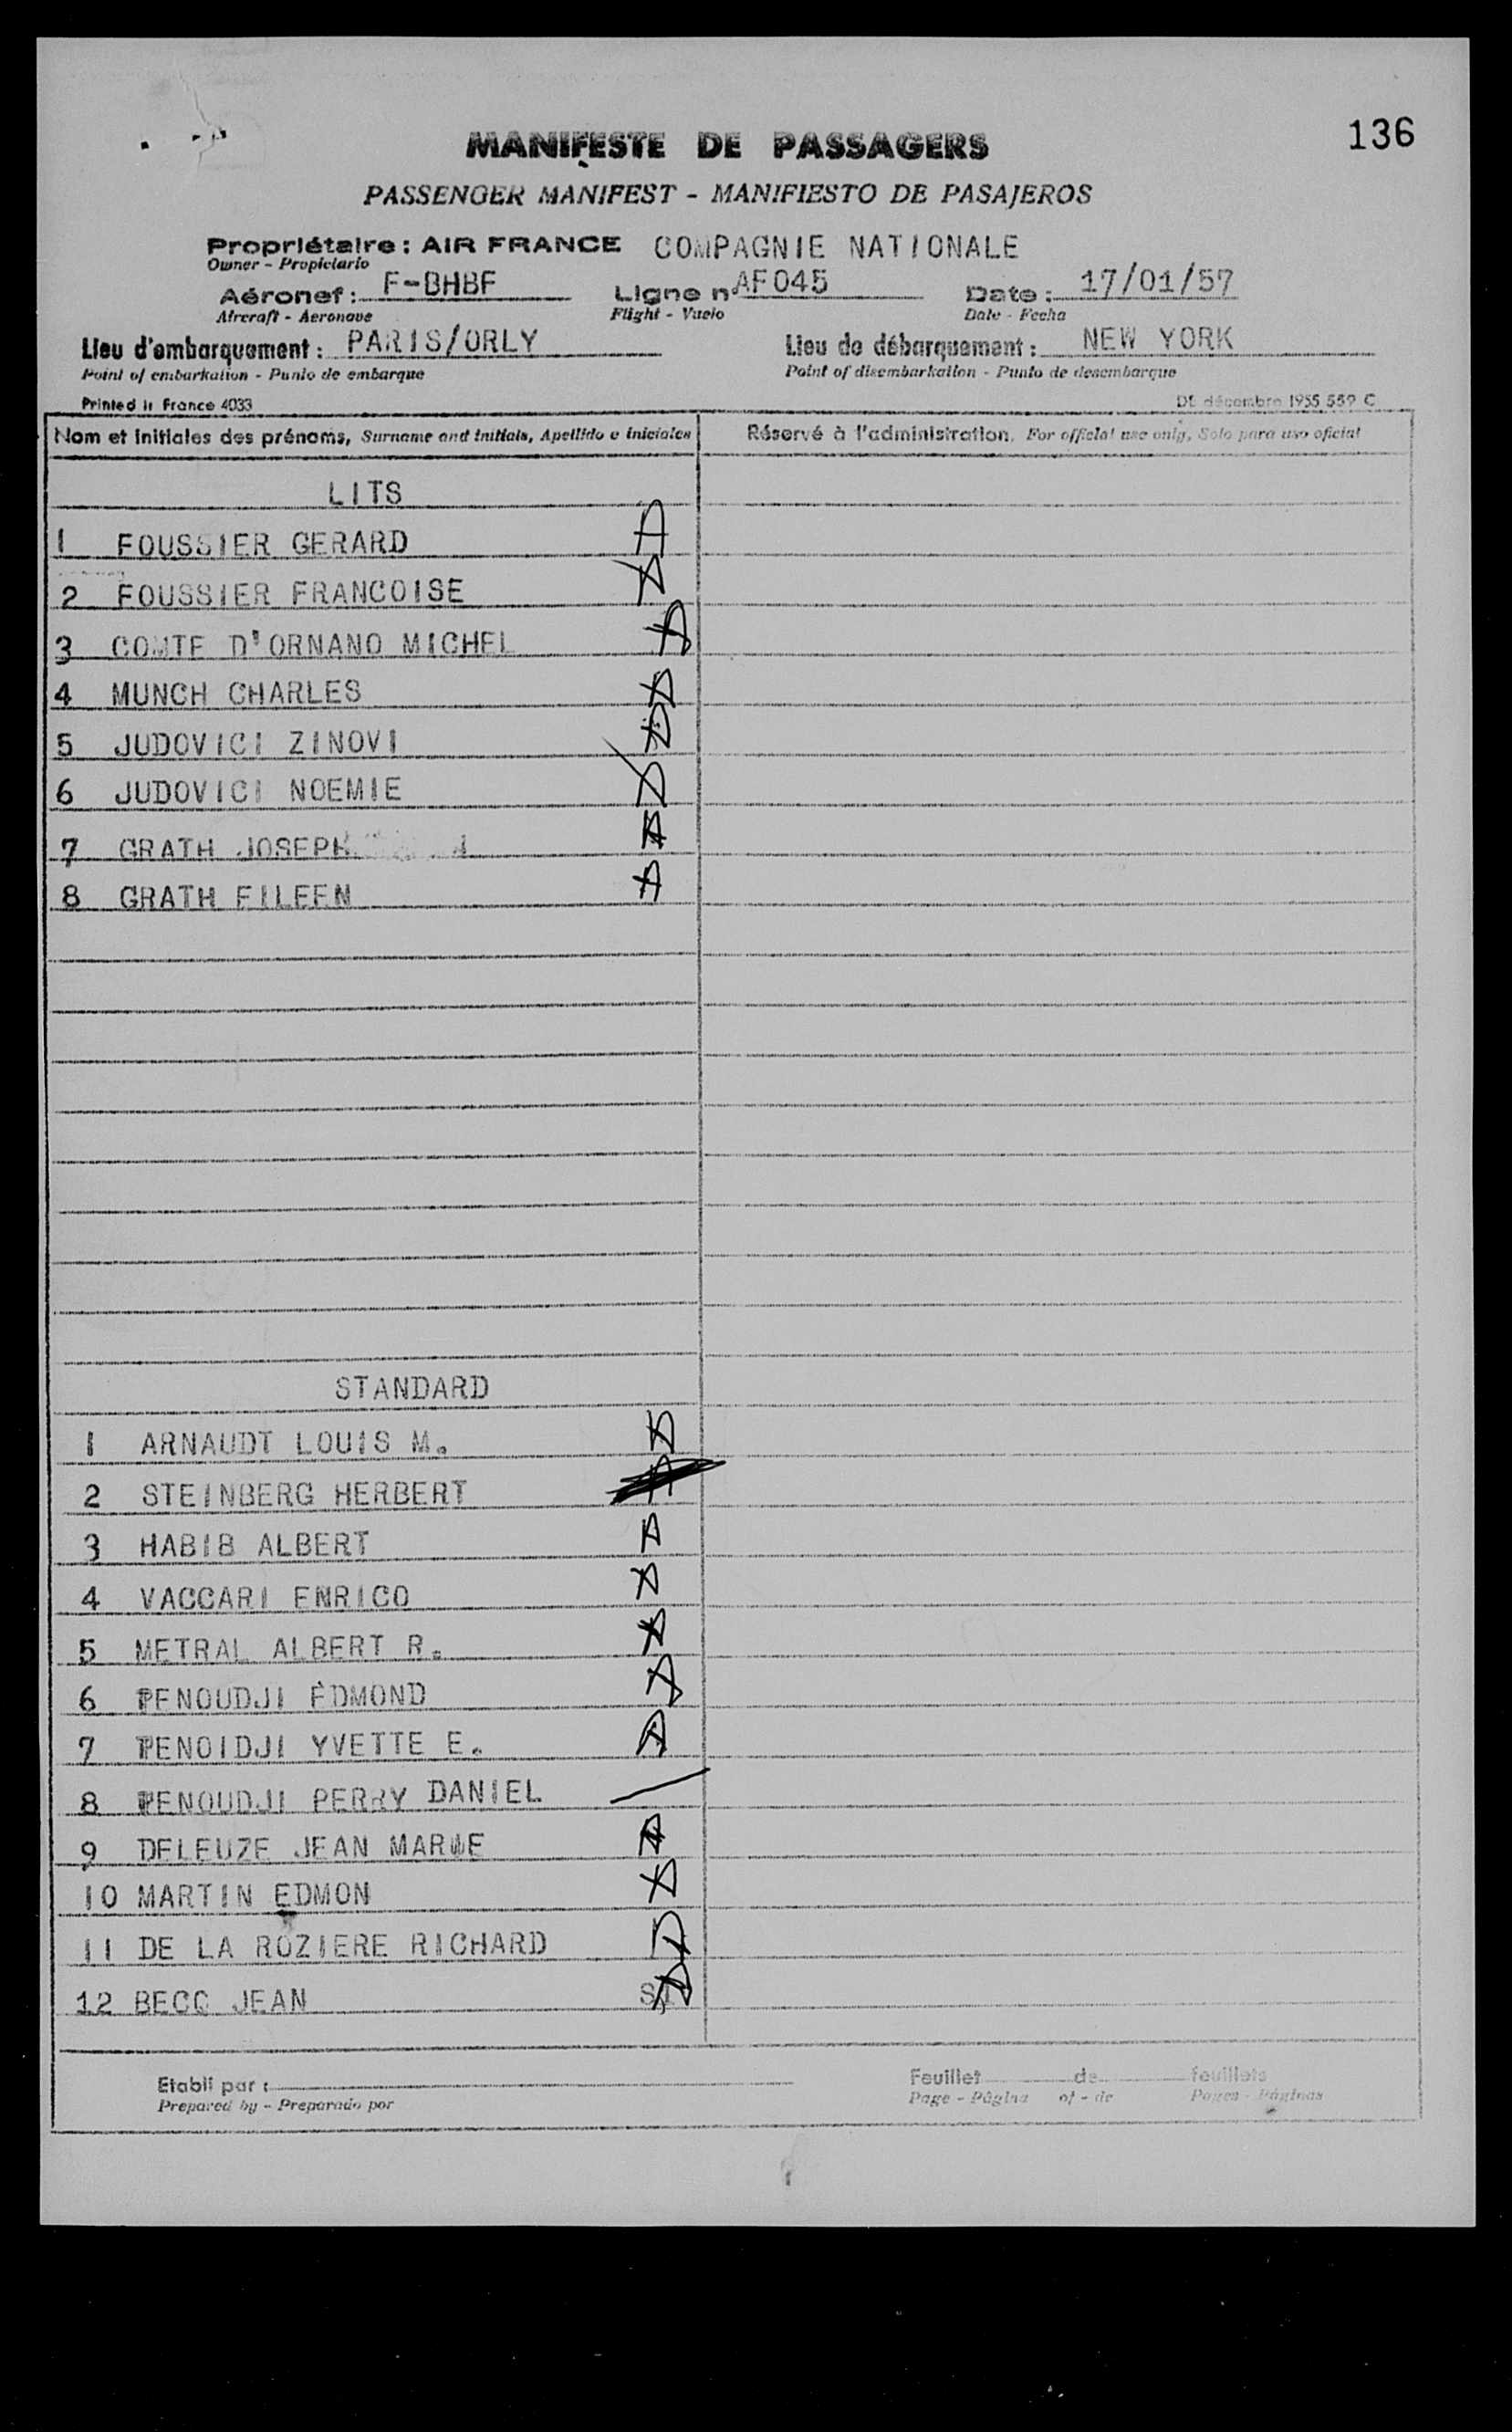 136
MANIFESTE DE PASSAGERS
PASSENGER MANIFEST - MANIFIESTO DE PASAJEROS
Propriétaire : AIR FRANCE COMPAGNIE NATIONALE
Owner - Propietario
Aéronef : F-BHBF Ligne n° AF045 Date : 17/01/57
Aircraft - Aeronave Flight - Vuelo Date - Fecha
Lieu d'embarquement : PARIS/ORLY Lieu de débarquement : NEW YORK
Point of embarkation - Punto de embarque Point of disembarkation - Punto de desembarque
Printed in France 4033 DE décembre 1955 559 C
Nom et initiales des prénoms, Surname and initials, Apellido e iniciales Réservé à l'administration, For official use only, Solo para uso oficial
LITS
1 FOUSSIER GERARD
2 FOUSSIER FRANCOISE
3 COMTE D'ORNANO MICHEL
4 MUNCH CHARLES
5 JUDOVICI ZINOVI
6 JUDOVICI NOEMIE
7 GRATH JOSEPH
8 GRATH EILEEN
STANDARD
1 ARNAUDT LOUIS M.
2 STEINBERG HERBERT
3 HABIB ALBERT
4 VACCARI ENRICO
5 METRAL ALBERT R.
6 TENOUDJI EDMOND
7 TENOIDJI YVETTE E.
8 TENOUDJI PERRY DANIEL
9 DELEUZE JEAN MARIE
10 MARTIN EDMON
11 DE LA ROZIERE RICHARD
12 BECQ JEAN
Etabli par : Feuillet de feuillets
Prepared by - Preparado por Page - Página of - de Pages - Páginas